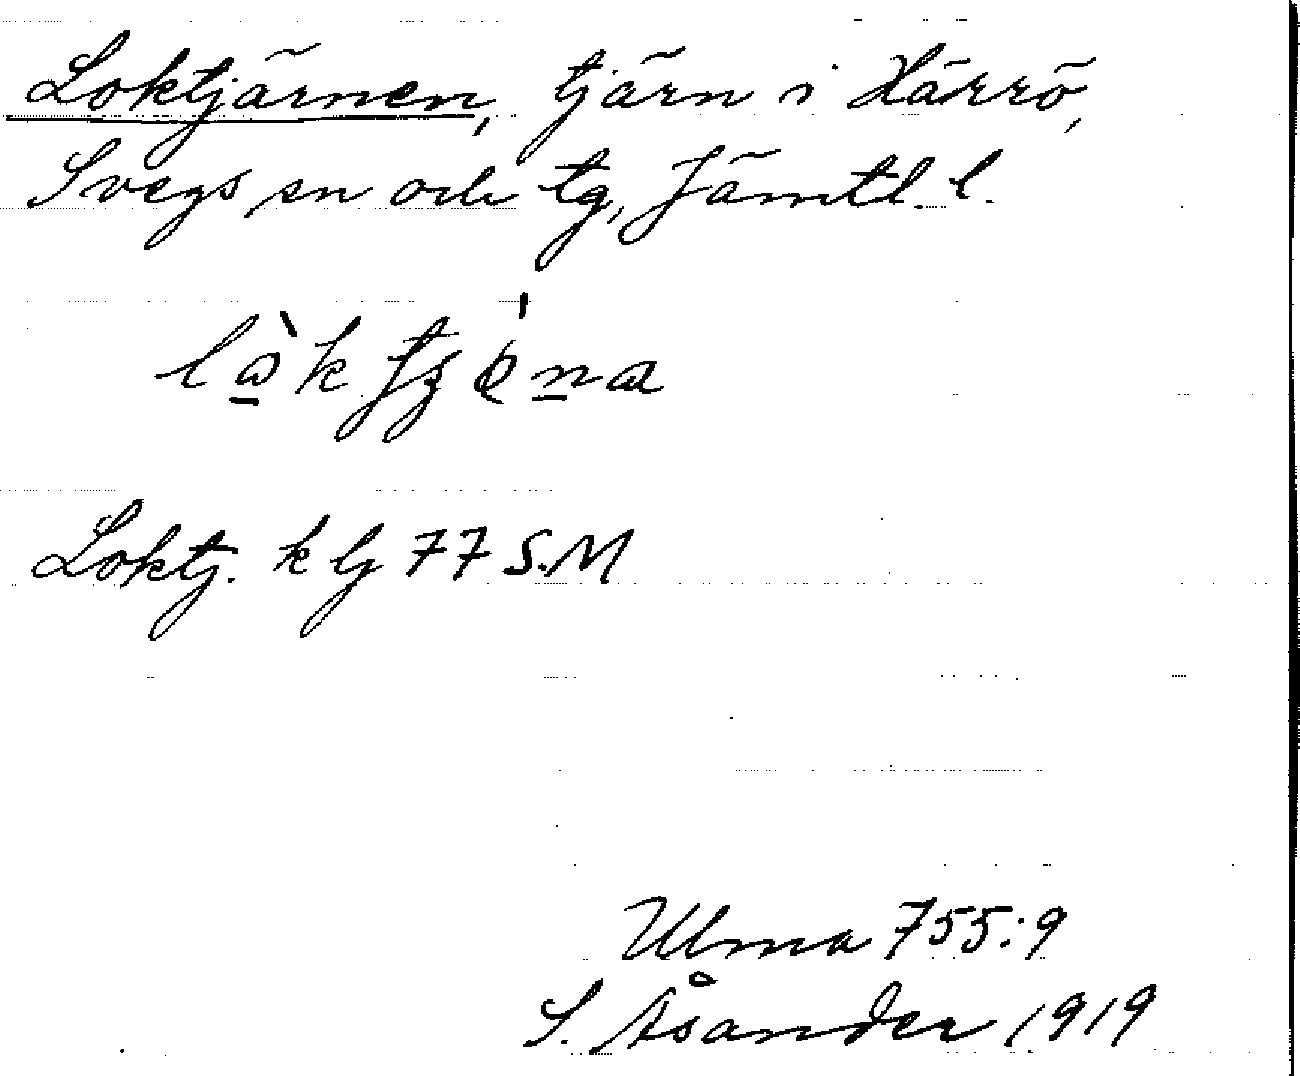 Loktjärnen, tjärn i Härrö,
Svegs sn och tg, Jämtl. l.
Loktj. k bj 77 S.M
Ulma 755:9
S. Åsander 1919